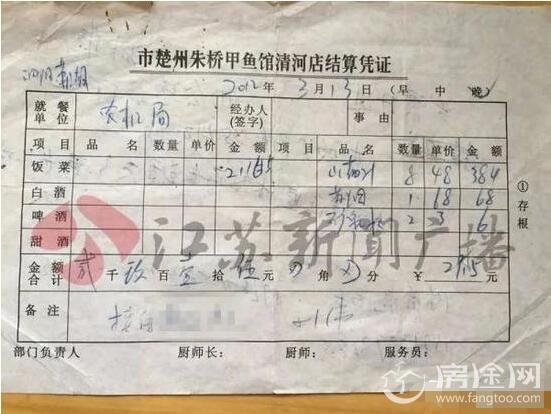 市楚州朱桥甲鱼馆清河店结算凭证
2012年3月13日(早 中 晚)
就餐单位 农机局 经办人(签字) 事由
项目 品名 数量 单价 金额 项目 品名 数量 单价 金额
饭菜 8 48 384
白酒 1 68 68
啤酒 2 3 6
甜酒
金额合计 贰千玖百壹拾伍元 角 分 ¥2915元
备注
部门负责人 厨师长: 厨师: 服务员:
①存根
江苏新闻广播
房途网
www.fangtoo.com